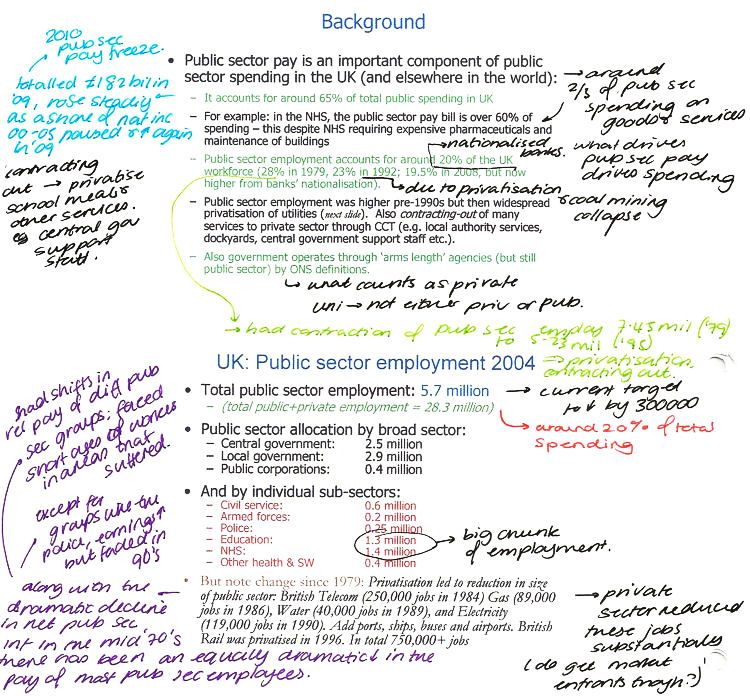 Background
2010
pub sec
pay freeze.
totalled £182bil in
'09, rose steadily
as a share of nat inc
00-05 paused & ↑ again
in '09
contracting
out → privatise
school meals
other services.
eg central gov
support
staff.
• Public sector pay is an important component of public
sector spending in the UK (and elsewhere in the world):
→ around
2/3 of pub sec
spending on
goods & services
– It accounts for around 65% of total public spending in UK
– For example: in the NHS, the public sector pay bill is over 60% of
spending – this despite NHS requiring expensive pharmaceuticals and
maintenance of buildings
→ nationalised
banks.
what drives
pub sec pay
drives spending
– Public sector employment accounts for around 20% of the UK
workforce (28% in 1979, 23% in 1992; 19.5% in 2008, but now
higher from banks' nationalisation).
→ due to privatisation
& coal mining
collapse
– Public sector employment was higher pre-1990s but then widespread
privatisation of utilities (next slide). Also contracting-out of many
services to private sector through CCT (e.g. local authority services,
dockyards, central government support staff etc.).
– Also government operates through 'arms length' agencies (but still
public sector) by ONS definitions.
↳ what counts as private
uni → not either priv or pub.
→ had contraction of pub sec employ 7.45 mil ('79)
to 5.23 mil ('98)
→ privatisation
contracting out.
UK: Public sector employment 2004
• Total public sector employment: 5.7 million
– (total public+private employment = 28.3 million)
→ current target
to ↓ by 300000
→ around 20% of total
spending
• Public sector allocation by broad sector:
– Central government: 2.5 million
– Local government: 2.9 million
– Public corporations: 0.4 million
• And by individual sub-sectors:
– Civil service: 0.6 million
– Armed forces: 0.2 million
– Police: 0.25 million
– Education: 1.3 million
– NHS: 1.4 million
– Other health & SW 0.4 million
→ big chunk
of employment.
• But note change since 1979: Privatisation led to reduction in size
of public sector: British Telecom (250,000 jobs in 1984) Gas (89,000
jobs in 1986), Water (40,000 jobs in 1989), and Electricity
(119,000 jobs in 1990). Add ports, ships, buses and airports. British
Rail was privatised in 1996. In total 750,000+ jobs
→ private
sector reduced
these jobs
substantially
(do get market
entrants though?)
had shifts in
rel pay of diff pub
sec groups: faced
shortages of workers
in areas that
suffered.
except for
groups like the
police, earnings ↑
but faded in
90's
along with the
dramatic decline
in net pub sec
inv in the mid '70's
there has been an equally dramatic ↓ in the
pay of most pub sec employees.